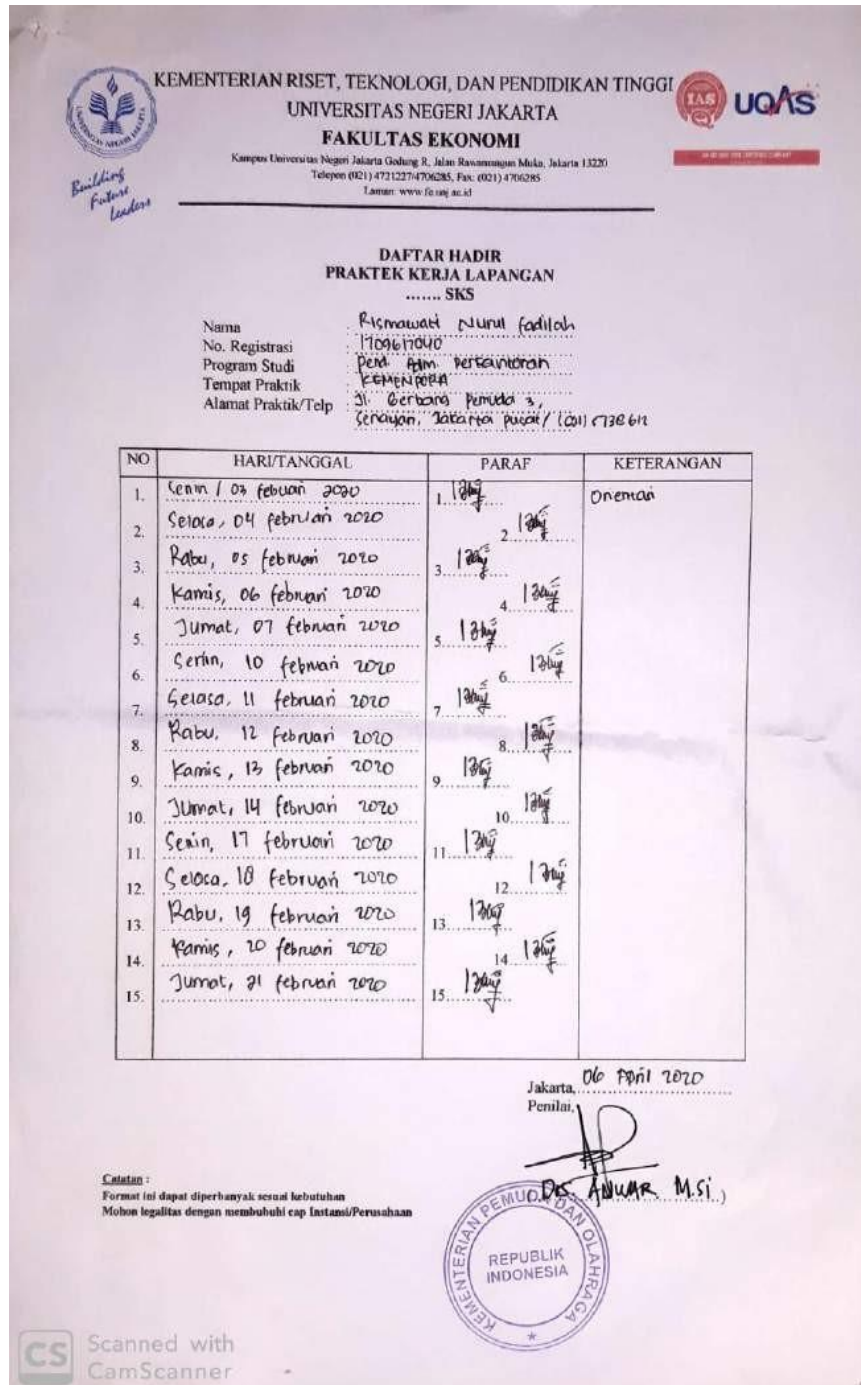 KEMENTERIAN RISET, TEKNOLOGI, DAN PENDIDIKAN TINGGI
UNIVERSITAS NEGERI JAKARTA
FAKULTAS EKONOMI
Kampus Universitas Negeri Jakarta Gedung R, Jalan Rawamangun Muka, Jakarta 13220
Telepon (021) 4721227/4706285, Fax: (021) 4706285
Laman: www.fe.unj.ac.id
Building
Future
Leaders
IAS
UQAS
DAFTAR HADIR
PRAKTEK KERJA LAPANGAN
....... SKS
Nama : Rismawati Nurul fadilah
No. Registrasi : 1709617040
Program Studi : Pend. Adm. Perkantoran
Tempat Praktik : KEMENPORA
Alamat Praktik/Telp : Jl. Gerbang Pemuda 3,
Senayan, Jakarta pusat/ (021)
NO HARI/TANGGAL PARAF KETERANGAN
1. Senin / 03 febuari 2020 1. Orientasi
2. Selasa, 04 februari 2020 2.
3. Rabu, 05 februari 2020 3.
4. Kamis, 06 februari 2020 4.
5. Jumat, 07 februari 2020 5.
6. Senin, 10 februari 2020 6.
7. Selasa, 11 februari 2020 7.
8. Rabu, 12 februari 2020 8.
9. Kamis, 13 februari 2020 9.
10. Jumat, 14 februari 2020 10.
11. Senin, 17 februari 2020 11.
12. Selasa, 18 februari 2020 12.
13. Rabu, 19 februari 2020 13.
14. Kamis, 20 februari 2020 14.
15. Jumat, 21 februari 2020 15.
Jakarta, 06 April 2020
Penilai,
(Drs. ANWAR M.Si)
Catatan :
Format ini dapat diperbanyak sesuai kebutuhan
Mohon legalitas dengan membubuhi cap Instansi/Perusahaan
KEMENTERIAN PEMUDA DAN OLAHRAGA
REPUBLIK
INDONESIA
CS Scanned with
CamScanner